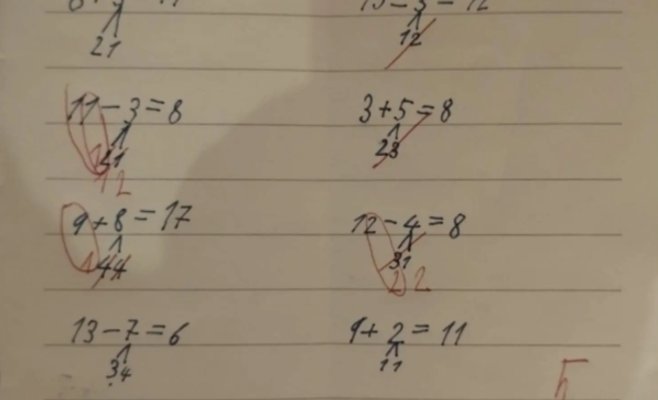 21 12
11 - 3 = 8 3 + 5 = 8
12 23
9 + 8 = 17 12 - 4 = 8
1 44 31
2 2
13 - 7 = 6 9 + 2 = 11
34 11
5